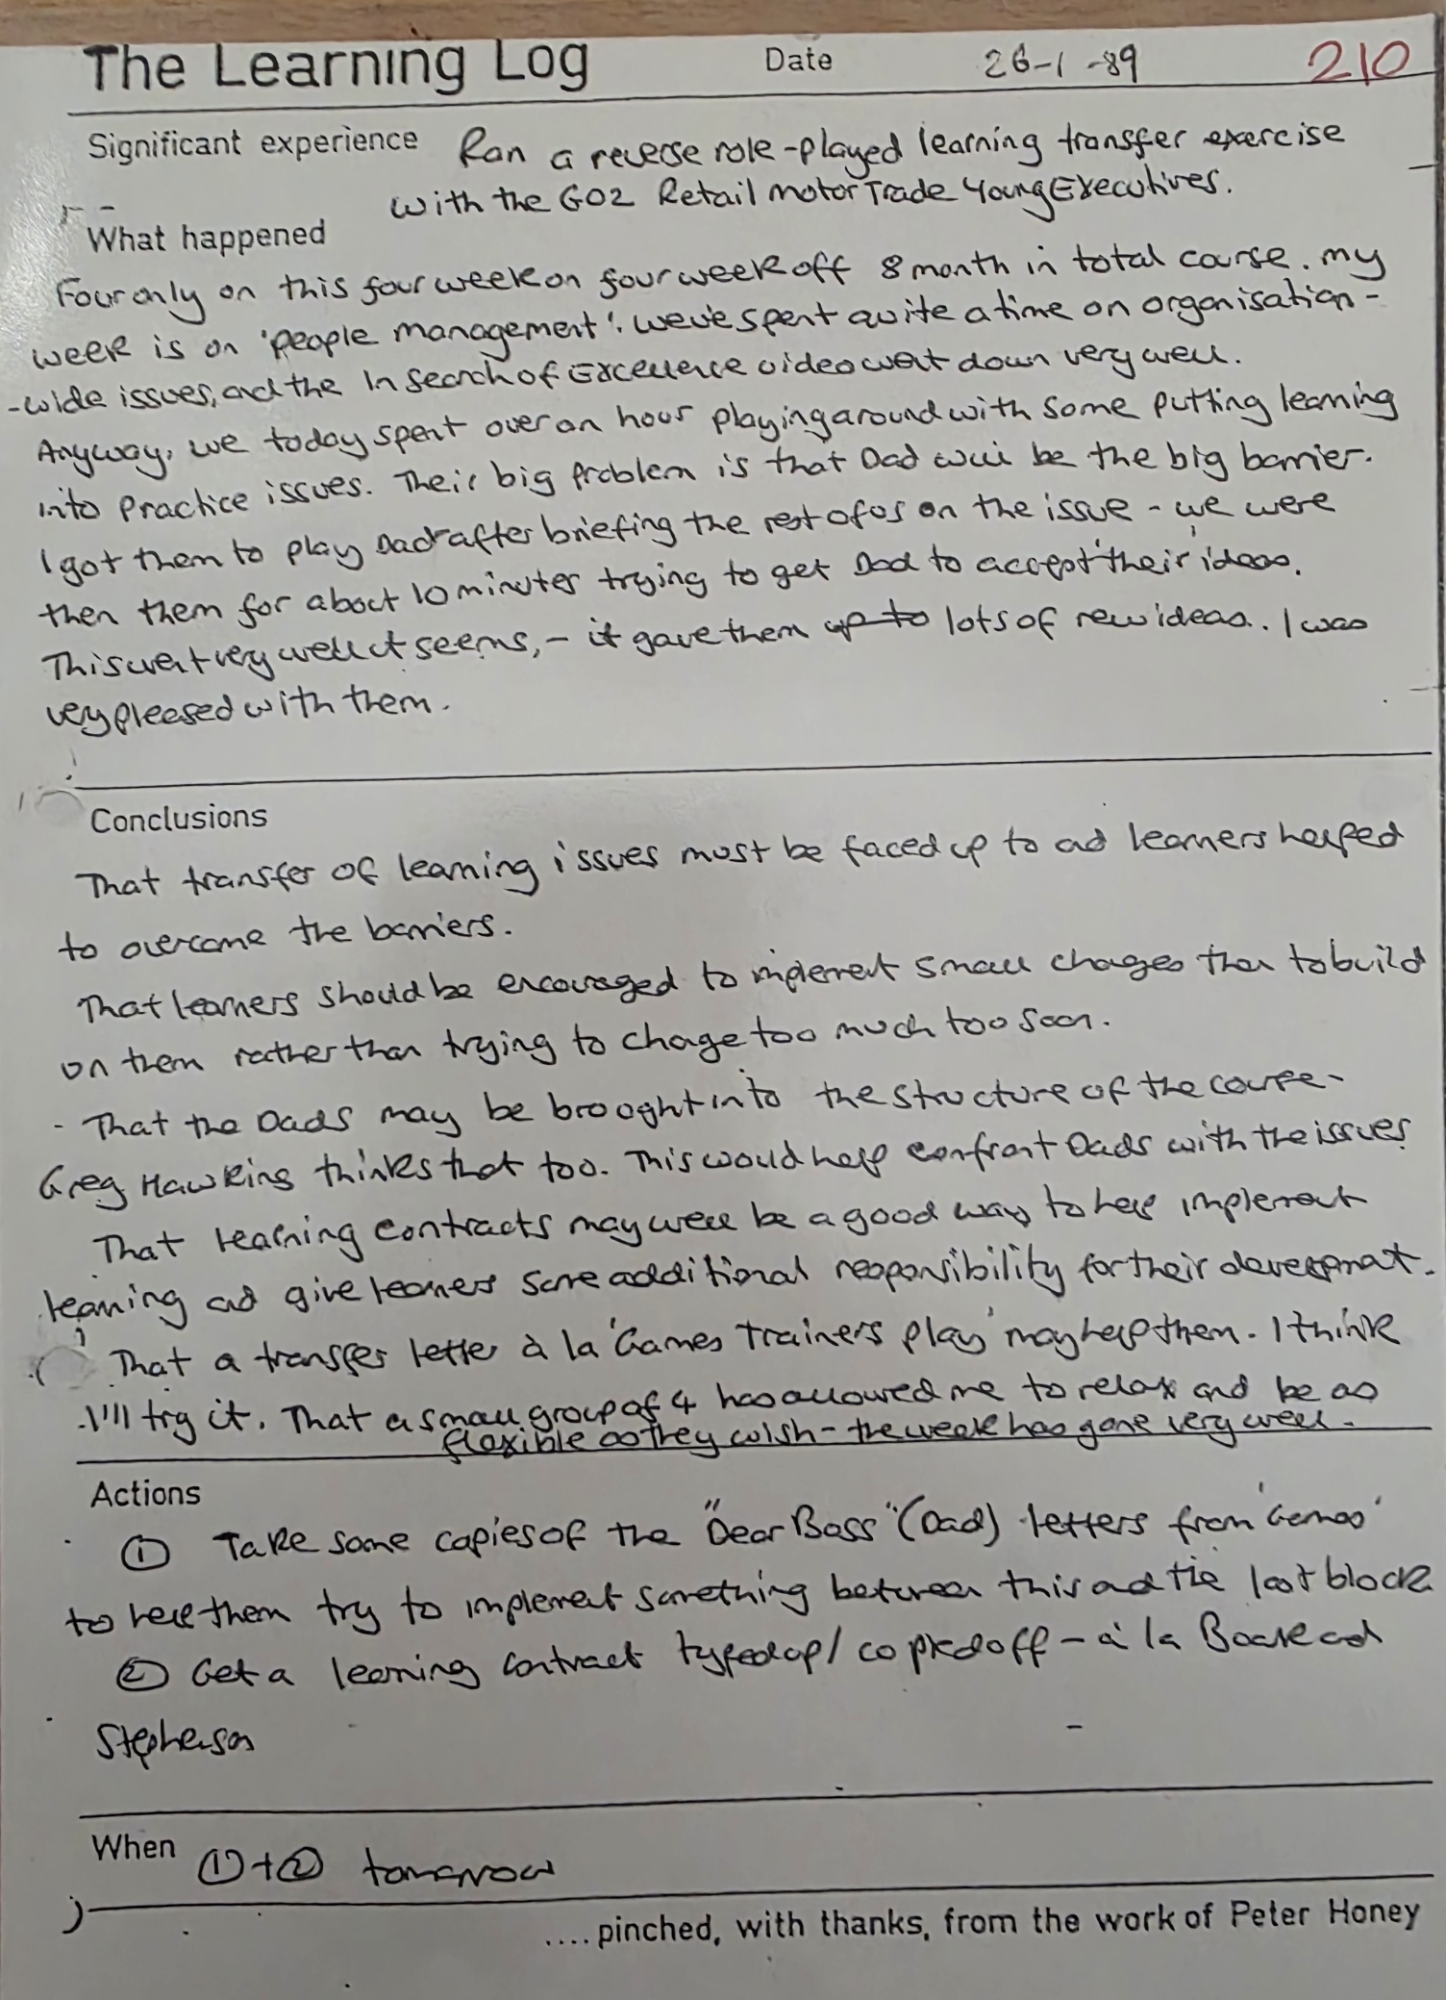 The Learning Log Date 26-1-89 210
Significant experience Ran a reverse role-played learning transfer exercise
with the GO2 Retail Motor Trade Young Executives.
What happened
Four only on this four week on four week off 8 month in total course. My
week is on 'people management'. We've spent quite a time on organisation-
-wide issues, and the In Search of Excellence video went down very well.
Anyway, we today spent over an hour playing around with some putting learning
into practice issues. Their big problem is that Dad will be the big barrier.
I got them to play Dad after briefing the rest of us on the issue - we were
then them for about 10 minutes trying to get Dad to accept 'their' ideas.
This went very well it seems, - it gave them up to lots of new ideas. I was
very pleased with them.
Conclusions
That transfer of learning issues must be faced up to and learners helped
to overcome the barriers.
That learners should be encouraged to implement small changes then to build
on them rather than trying to change too much too soon.
- That the Dads may be brought into the structure of the course -
Greg Hawkins thinks that too. This would help confront Dads with the issues
That learning contracts may well be a good way to help implement
learning and give learners some additional responsibility for their development.
That a transfer letter à la 'Games Trainers Play' may help them. I think
I'll try it. That a small group of 4 has allowed me to relax and be as
flexible as they wish - the week has gone very well.
Actions
① Take some copies of the "Dear Boss" (Dad) letters from 'Games'
to help them try to implement something between this and the last block
② Get a learning contract typed up / copied off - à la Boak and
Stephenson
When ① + ② tomorrow
.... pinched, with thanks, from the work of Peter Honey